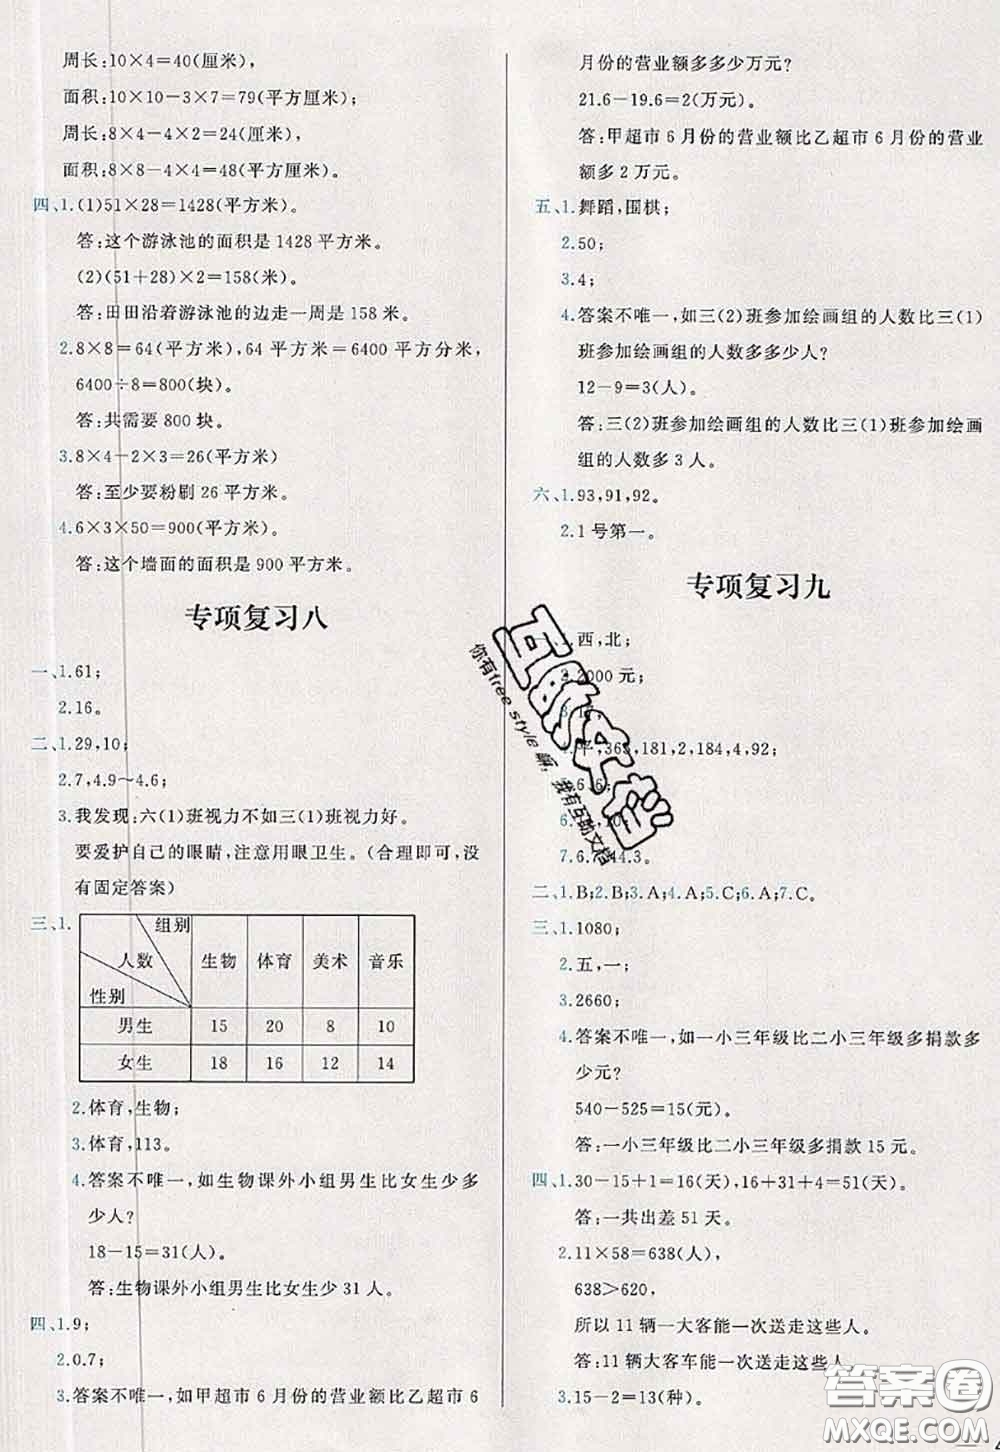 周长:10×4=40(厘米),
面积:10×10-3×7=79(平方厘米);
周长:8×4-4×2=24(厘米),
面积:8×8-4×4=48(平方厘米)。
四、1.(1)51×28=1428(平方米)。
答:这个游泳池的面积是1428平方米。
(2)(51+28)×2=158(米)。
答:田田沿着游泳池的边走一周是158米。
2.8×8=64(平方米),64平方米=6400平方分米,
6400÷8=800(块)。
答:共需要800块。
3.8×4-2×3=26(平方米)
答:至少要粉刷26平方米。
4.6×3×50=900(平方米)。
答:这个墙面的面积是900平方米。
专项复习八
一、1.61;
2.16。
二、1.29,10;
2.7,4.9~4.6;
3.我发现:六(1)班视力不如三(1)班视力好。
要爱护自己的眼睛,注意用眼卫生。(合理即可,没
有固定答案)
三、1.
组别
人数 生物 体育 美术 音乐
性别
男生 15 20 8 10
女生 18 16 12 14
2.体育,生物;
3.体育,113。
4.答案不唯一,如生物课外小组男生比女生少多
少人?
18-15=31(人)。
答:生物课外小组男生比女生少31人。
四、1.9;
2.0.7;
3.答案不唯一,如甲超市6月份的营业额比乙超市6
月份的营业额多多少万元?
21.6-19.6=2(万元)。
答:甲超市6月份的营业额比乙超市6月份的营业
额多2万元。
五、1.舞蹈,围棋;
2.50;
3.4;
4.答案不唯一,如三(2)班参加绘画组的人数比三(1)
班参加绘画组的人数多多少人?
12-9=3(人)。
答:三(2)班参加绘画组的人数比三(1)班参加绘画
组的人数多3人。
六、1.93,91,92。
2.1号第一。
专项复习九
西,北;
2000元;
平,365,181,2,184,4,92;
6,6;
6.
,10;
7.6.7,44.3。
二、1.B;2.B;3.A;4.A;5.C;6.A;7.C。
三、1.1080;
2.五,一;
3.2660;
4.答案不唯一,如一小三年级比二小三年级多捐款多
少元?
540-525=15(元)。
答:一小三年级比二小三年级多捐款15元。
四、1.30-15+1=16(天),16+31+4=51(天)。
答:一共出差51天。
2.11×58=638(人),
638>620,
所以11辆一大客能一次送走这些人。
答:11辆大客车能一次送走这些人。
3.15-2=13(种)。
互助文档
你有free style嘛,我有互助文档
答案圈
MXQE.COM